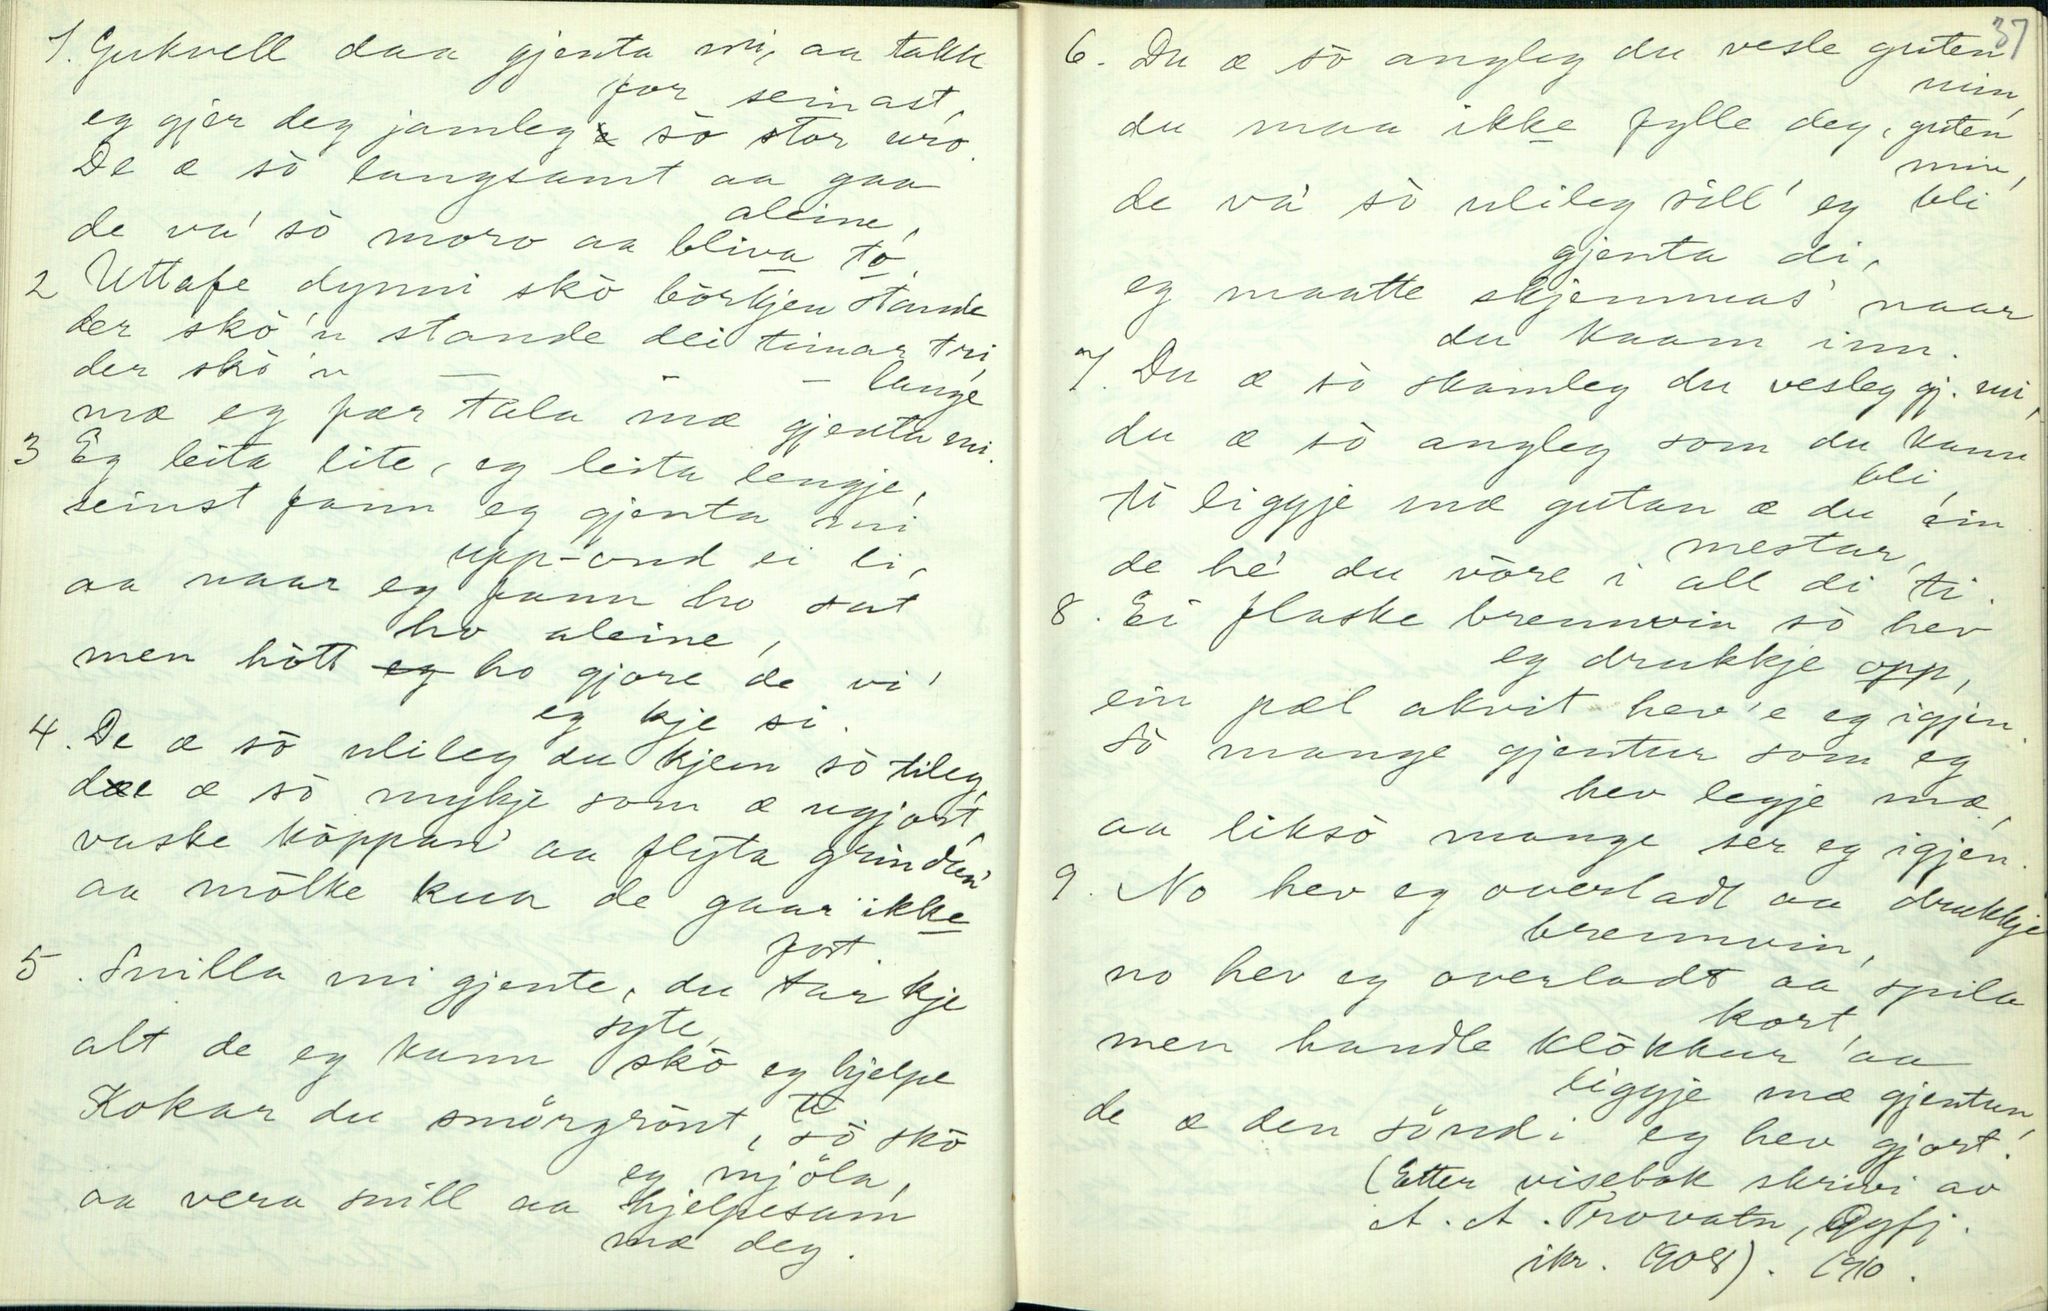 1. Gukvell daa gjenta mi, aa takk
for seinast,
eg gjer deg jamleg so stor uro.
De æ sò langsamt aa gaa
aleine,
de va' sò moro aa bliva to.
2 Uttafe dynni skò börkjen stande
der skò'n stande dei timar tri,
der skò'n — — — lange
mæ eg fær tala mæ gjenta mi.
3 Eg leita lite, eg leita lengje,
seinst fann eg gjenta mi
upp-ond ei li,
aa naar eg fann ho sat
ho aleine,
men hòtt ho gjore de vi'
eg kje si.
4. De æ sò ulileg du kjem sò tileg,
de æ sò mykje som æ ugjort,
vaske kòppan' aa flyta grindan'
aa mòlke kua de gaar ikke
fort.
5. Snilla mi gjente, du tar kje
syte,
alt de eg kann skò eg hjelpe
ti
Kokar du smörgrönt, sò skò
eg mjöla,
aa vera snill aa hjelpesam
mæ deg.
37
6. Du æ sò angleg du vesle guten
min,
du maa ikke fylle deg, guten
min,
de va' sò ulileg sill' eg bli
gjenta di,
eg maatte skjemmas' naar
du kaam inn.
7. Du æ sò skamleg du vesleg gj. mi,
du æ sò angleg som du kann
bli,
ti liggje mæ gutan æ du ein
mestar,
de he' du vòre i all di ti.
8. Ei flaske brennvin sò hev
eg drukkje opp,
ein pæl akvit hev'e eg igjen.
Sò mange gjentur som eg
hev legje mæ,
aa liksò mange ser eg igjen.
9. No hev eg overladt aa drukkje
brennvin,
no hev eg overladt aa spila
kort,
men handle klòkkur aa
liggje mæ gjentun,
de æ den söndi eg hev gjort.
(Etter visebok skrivi av
A. A. Trovatn, Öyfj.
ikr. 1908). 1910.